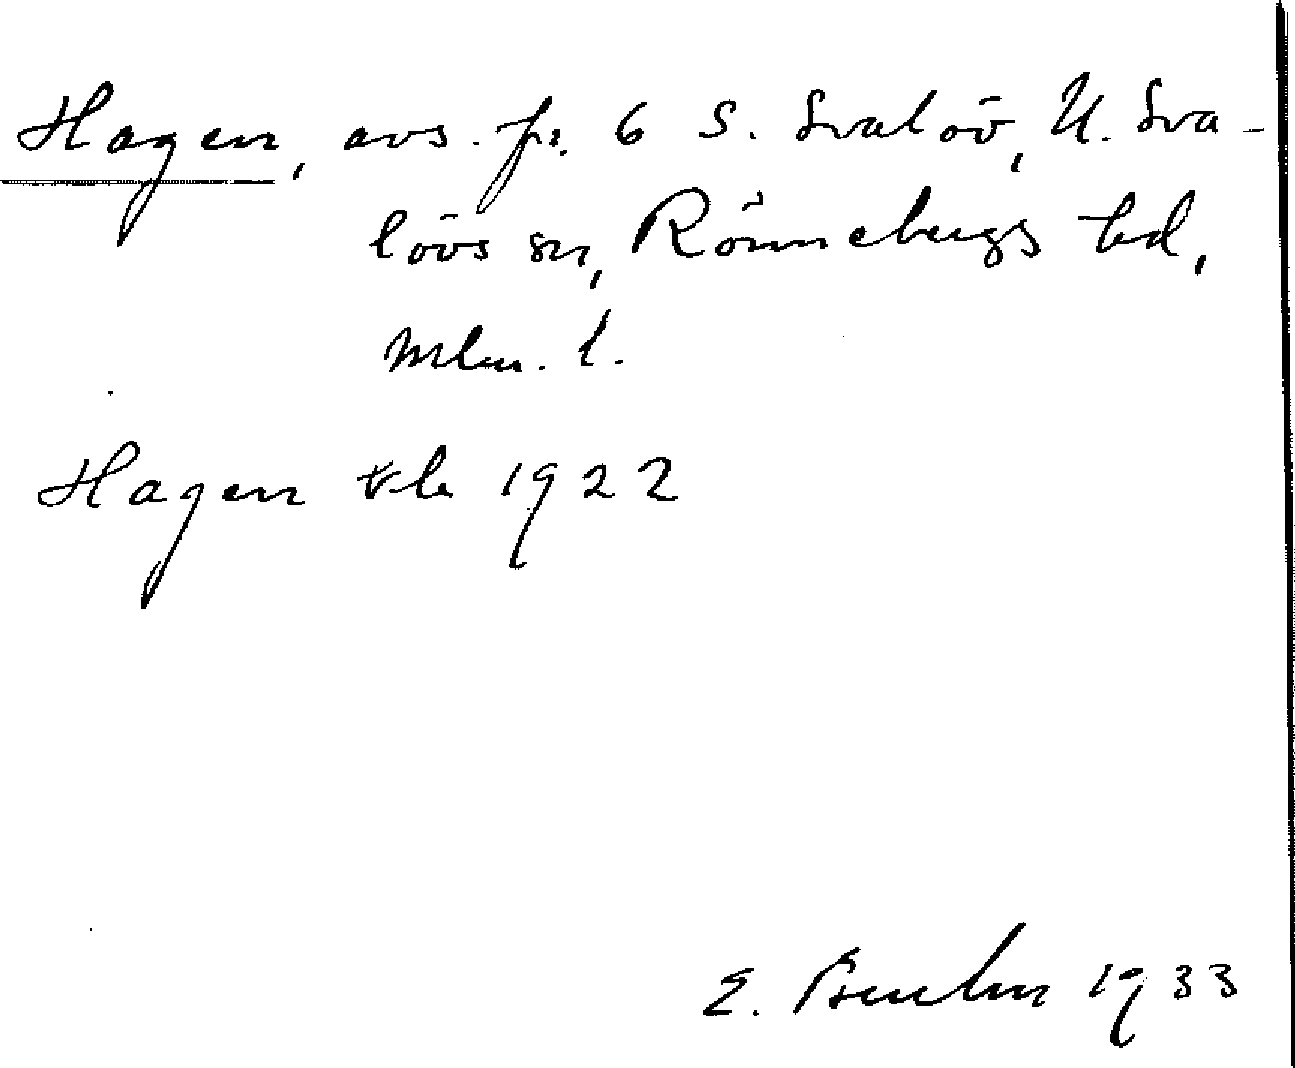 Hagen, avs. fr. 6 S. Svalöv, N. Sva-
lövs sn, Rönnebergs hd,
Mlm. l.
Hagen tk 1922
E. 1933